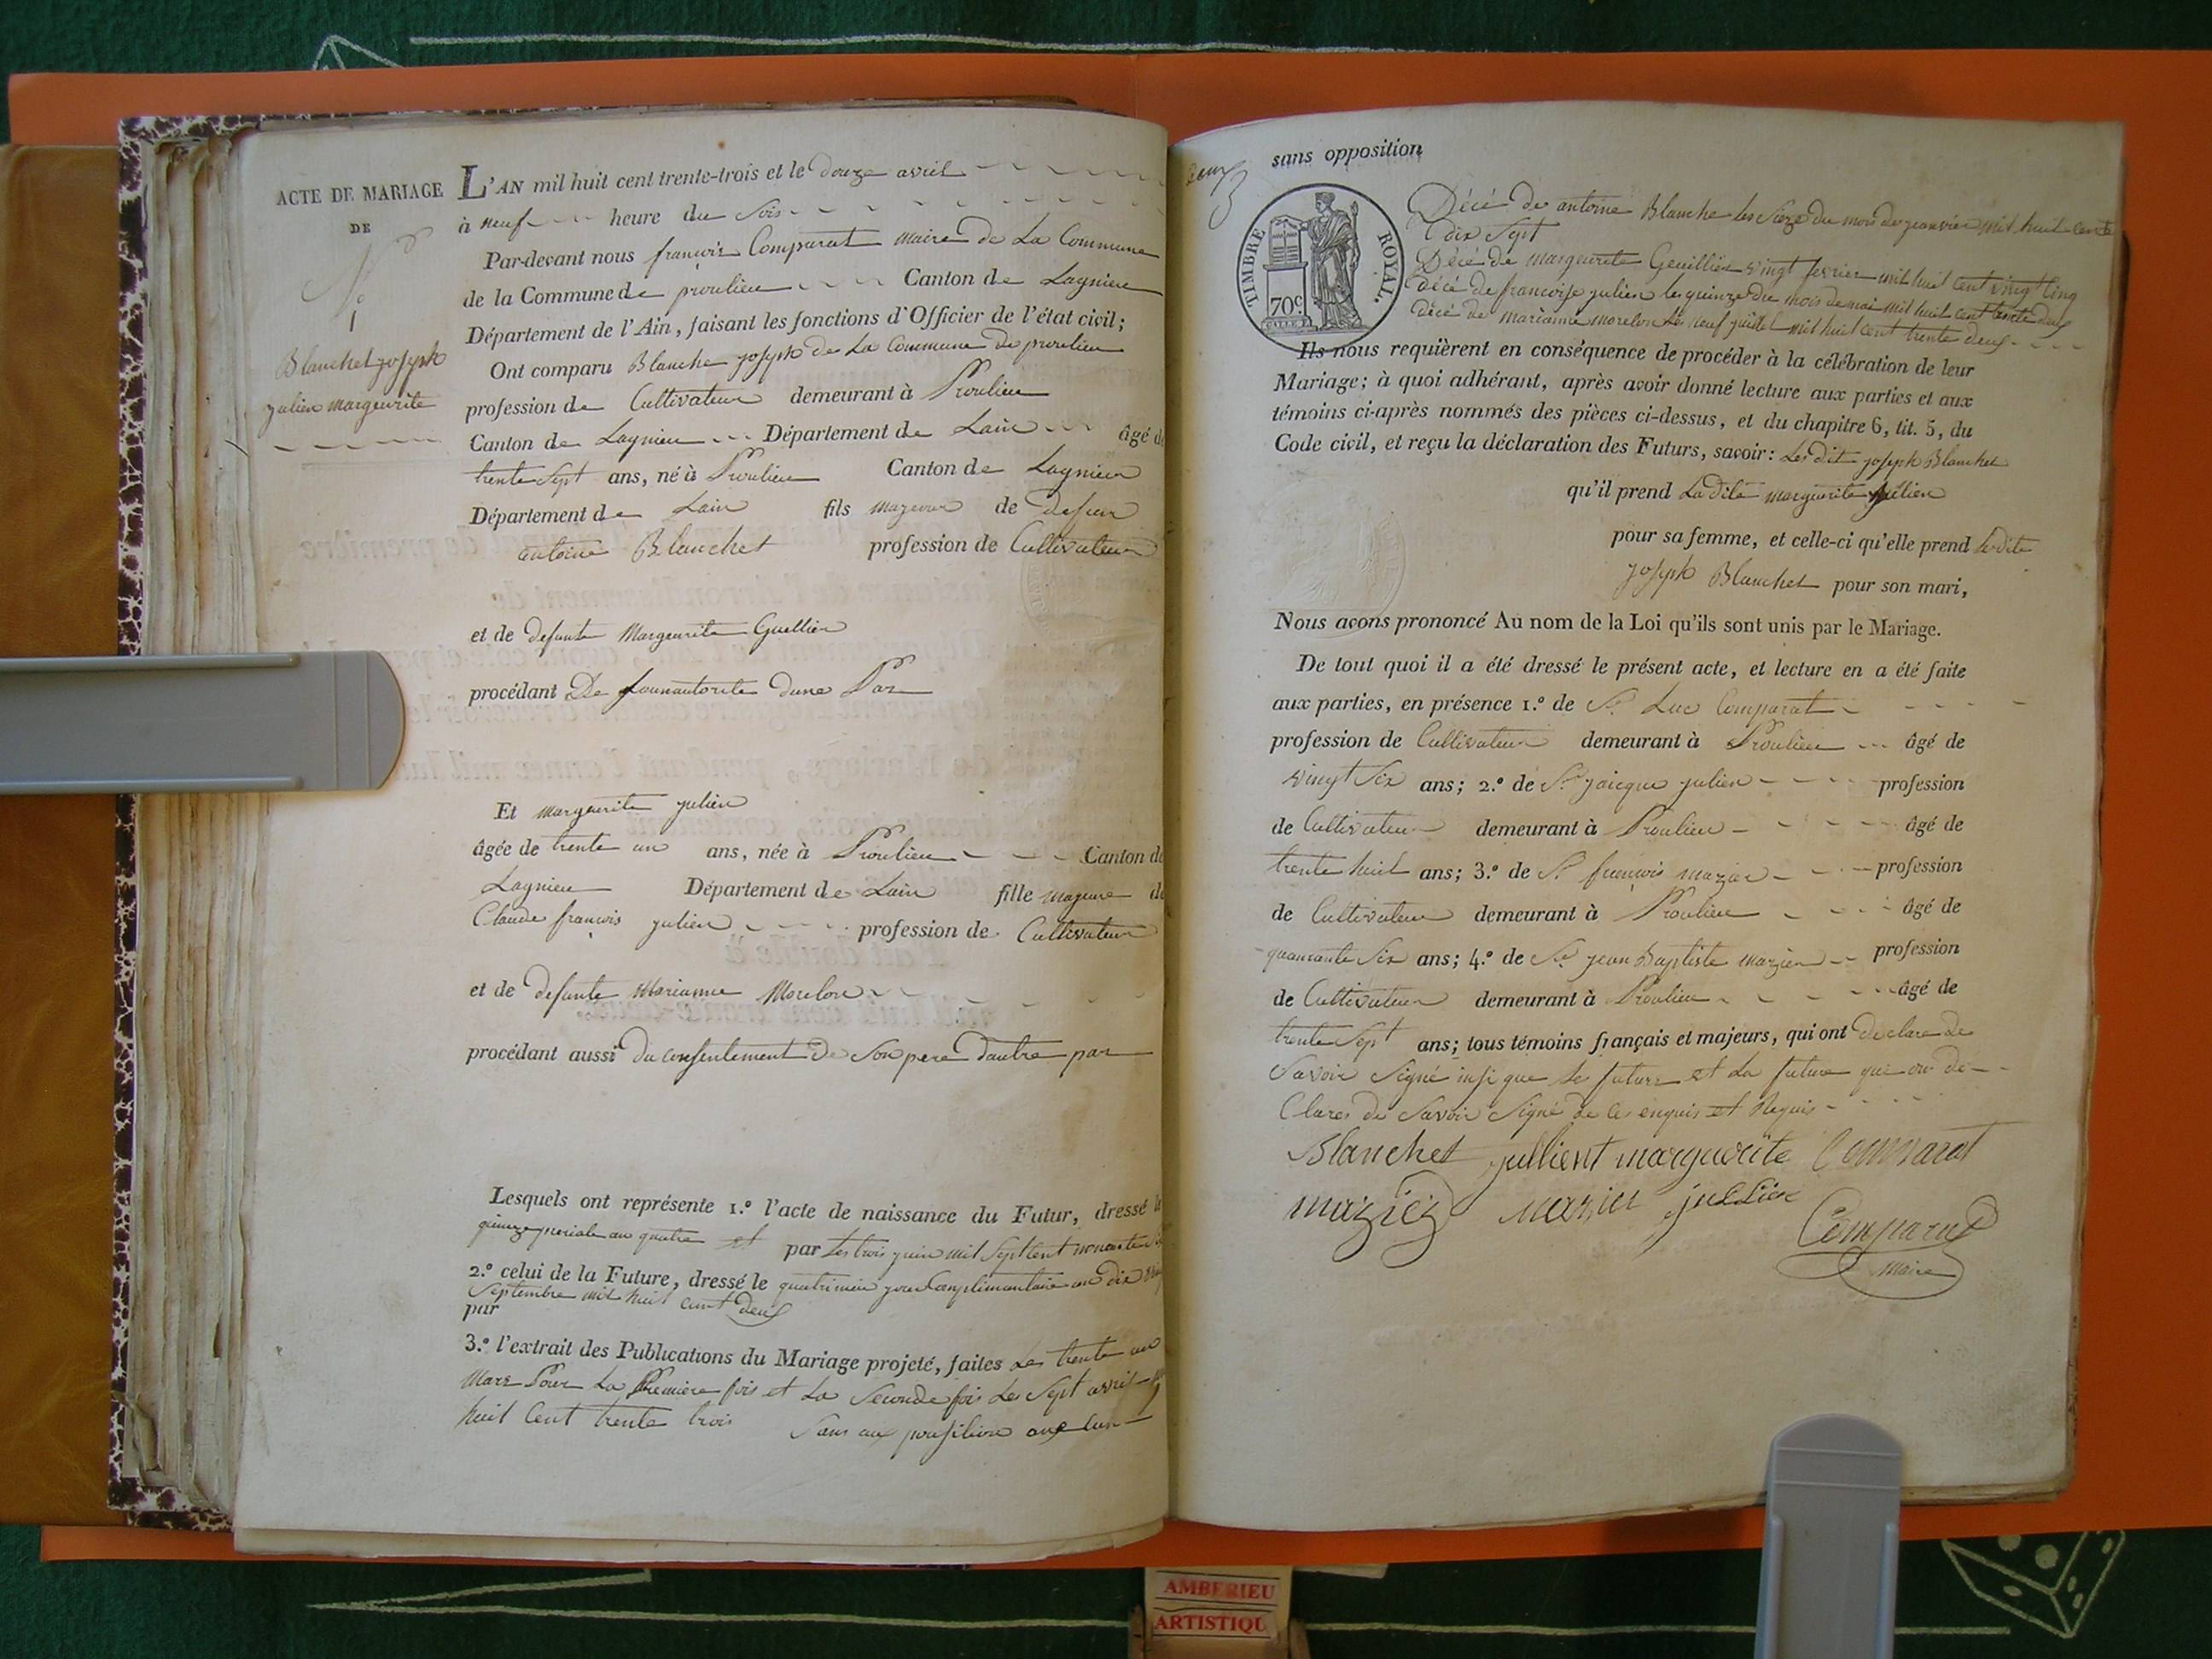 ACTE DE MARIAGE
DE
N°
1
Blanchet joseph
julien margeurite
L'AN mil huit cent trente-trois et le douze avril
à neuf heure du soir
Par-devant nous françois Comparat maire de La Commune
de la Commune de proulieu Canton de Lagnieu
Département de l'Ain, faisant les fonctions d'Officier de l'état civil;
Ont comparu Blanche joseph de La Commune de proulieu
profession de Cultivateur demeurant à Proulieu
Canton de Lagnieu Département de Lain âgé de
trente Sept ans, né à Proulieu Canton de Lagnieu
Département de Lain fils majeur de defeu
antoine Blanchet profession de Cultivateur
et de defunte Margeurite Guellier
procédant De dune Par
Et margeurite julien
âgée de trente un ans, née à Proulieu Canton de
Lagnieu Département de Lain fille majeure de
Claude françois julien profession de Cultivateur
et de defunte Marianne Morelon
procédant aussi du consentement De Son pere dautre par
Lesquels ont représente 1.° l'acte de naissance du Futur, dressé le
quinze preriale an quatre et par Les trois juin mil Sept Cent nonante
2.° celui de la Future, dressé le quatrimieu jour Complimantaire an dix
Septembre mil huit cent deux
par
3.° l'extrait des Publications du Mariage projeté, faites Les trente un
Mars Pour La Première fois et La Seconde fois Les Sept avril
huit Cent trente trois Sans
deux
sans opposition
TIMBRE ROYAL.
70c
Décé de antoine Blanche les Seize du mois de janvier mil huit cente
dix Sept
Décé de margeurite Geuillier vingt fevrier mil huit Cent vingt Cinq
décé de francoise julien les quinze du mois de mai mil huit cent trente deux
décé de marianne morelon Les neuf juillet mil huit cent trente deux
Ils nous requièrent en conséquence de procéder à la célébration de leur
Mariage; à quoi adhérant, après avoir donné lecture aux parties et aux
témoins ci-après nommés des pièces ci-dessus, et du chapitre 6, tit. 5, du
Code civil, et reçu la déclaration des Futurs, savoir: Les dit joseph Blanchet
qu'il prend La dite margeurite julien
pour sa femme, et celle-ci qu'elle prend Le dite
joseph Blanchet pour son mari,
Nous avons prononcé Au nom de la Loi qu'ils sont unis par le Mariage.
De tout quoi il a été dressé le présent acte, et lecture en a été faite
aux parties, en présence 1.° de Sr. Luc Comparat
profession de Cultivateur demeurant à Proulieu âgé de
vingt Six ans; 2.° de Sr. jacque julien profession
de Cultivateur demeurant à Proulieu âgé de
trente huit ans; 3.° de Sr françois mazier profession
de Cultivateur demeurant à Proulieu âgé de
quarante Six ans; 4.° de Sr. jean Baptiste mazier profession
de Cultivateur demeurant à Proulieu âgé de
trente Sept ans; tous témoins français et majeurs, qui ont declare de
Savoir Signé insi que Le future et La future qui on dé
Clares de Savoir Signé de Ces enquis et Requis
Blanchet jullient marguerite Comparat
maziez mazier jullien
Comparat
maire
AMBERIEU
ARTISTIQU